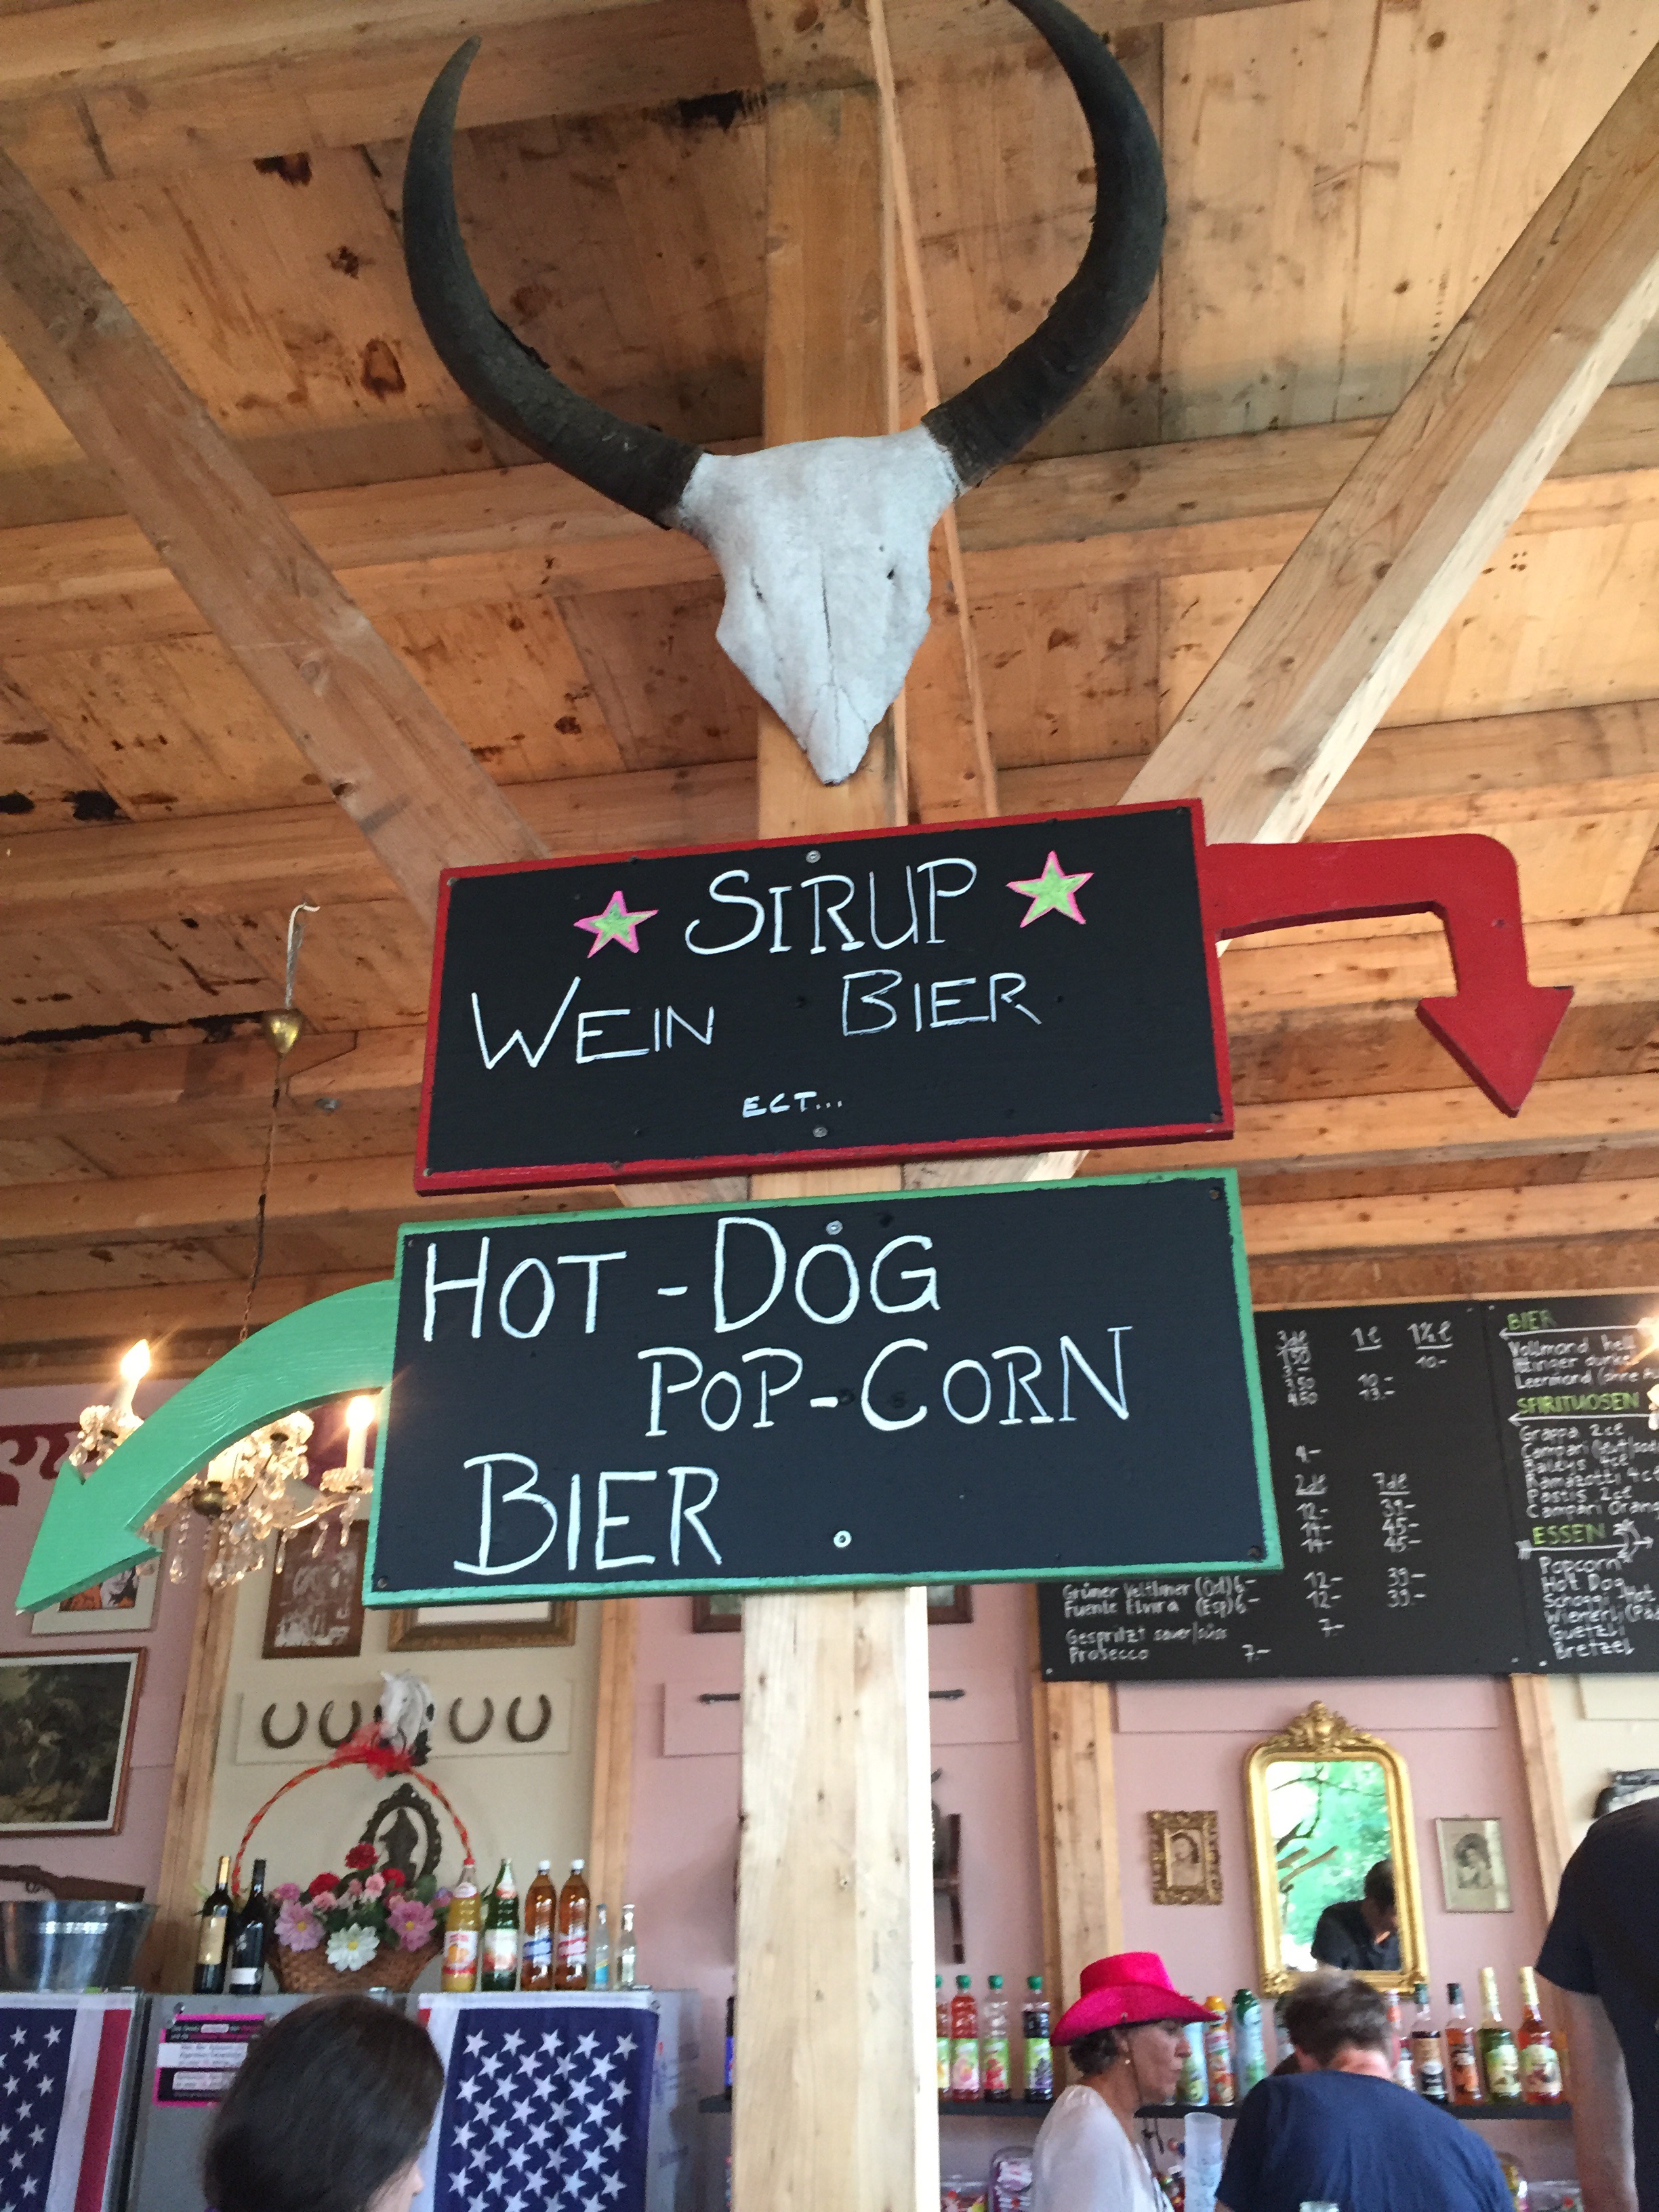 SIRUP
WEIN BIER
ECT...
HOT-DOG
POP-CORN
BIER
3dl 1l 1½l
10.-
4.50 13.-
4.-
2dl 7dl
12.- 39.-
45.-
45.-
Grüner Veltliner (Öst) 6.- 12.- 39.-
Fuente Elvira (Esp) 6.- 12.- 39.-
Gespritzt sauer/süss 7.-
Prosecco 7.-
BIER
Vollmond hell
Leermond (ohne
SPIRITUOSEN
Grappa 2cl
Campari
Baileys 4cl
Ramazotti 4cl
Pastis 2cl
Campari Orang
ESSEN
Popcorn
Hot Dog
Schoggi
Wienerli
Guetzli
Bretzel